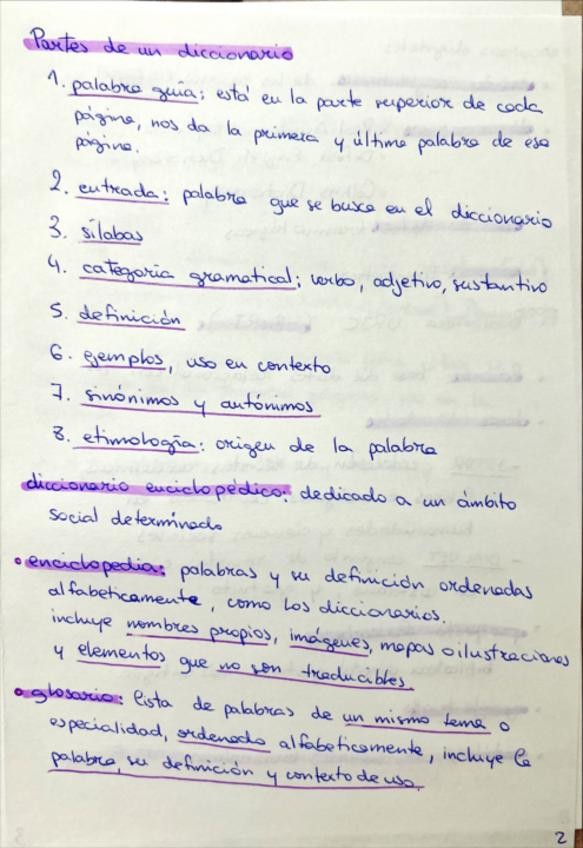 Partes de un diccionario
1. palabra guía: está en la parte superior de cada
página, nos da la primera y última palabra de esa
página.
2. entrada: palabra que se busca en el diccionario
3. sílabas
4. categoría gramatical: verbo, adjetivo, sustantivo
5. definición
6. ejemplos, uso en contexto
7. sinónimos y antónimos
8. etimología: origen de la palabra
diccionario enciclopédico: dedicado a un ámbito
social determinado
• enciclopedia: palabras y su definición ordenadas
alfabeticamente, como los diccionarios.
incluye nombres propios, imágenes, mapas o ilustraciones
y elementos que no son traducibles.
• glosario: lista de palabras de un mismo tema o
especialidad, ordenado alfabeticamente, incluye la
palabra, su definición y contexto de uso.
2